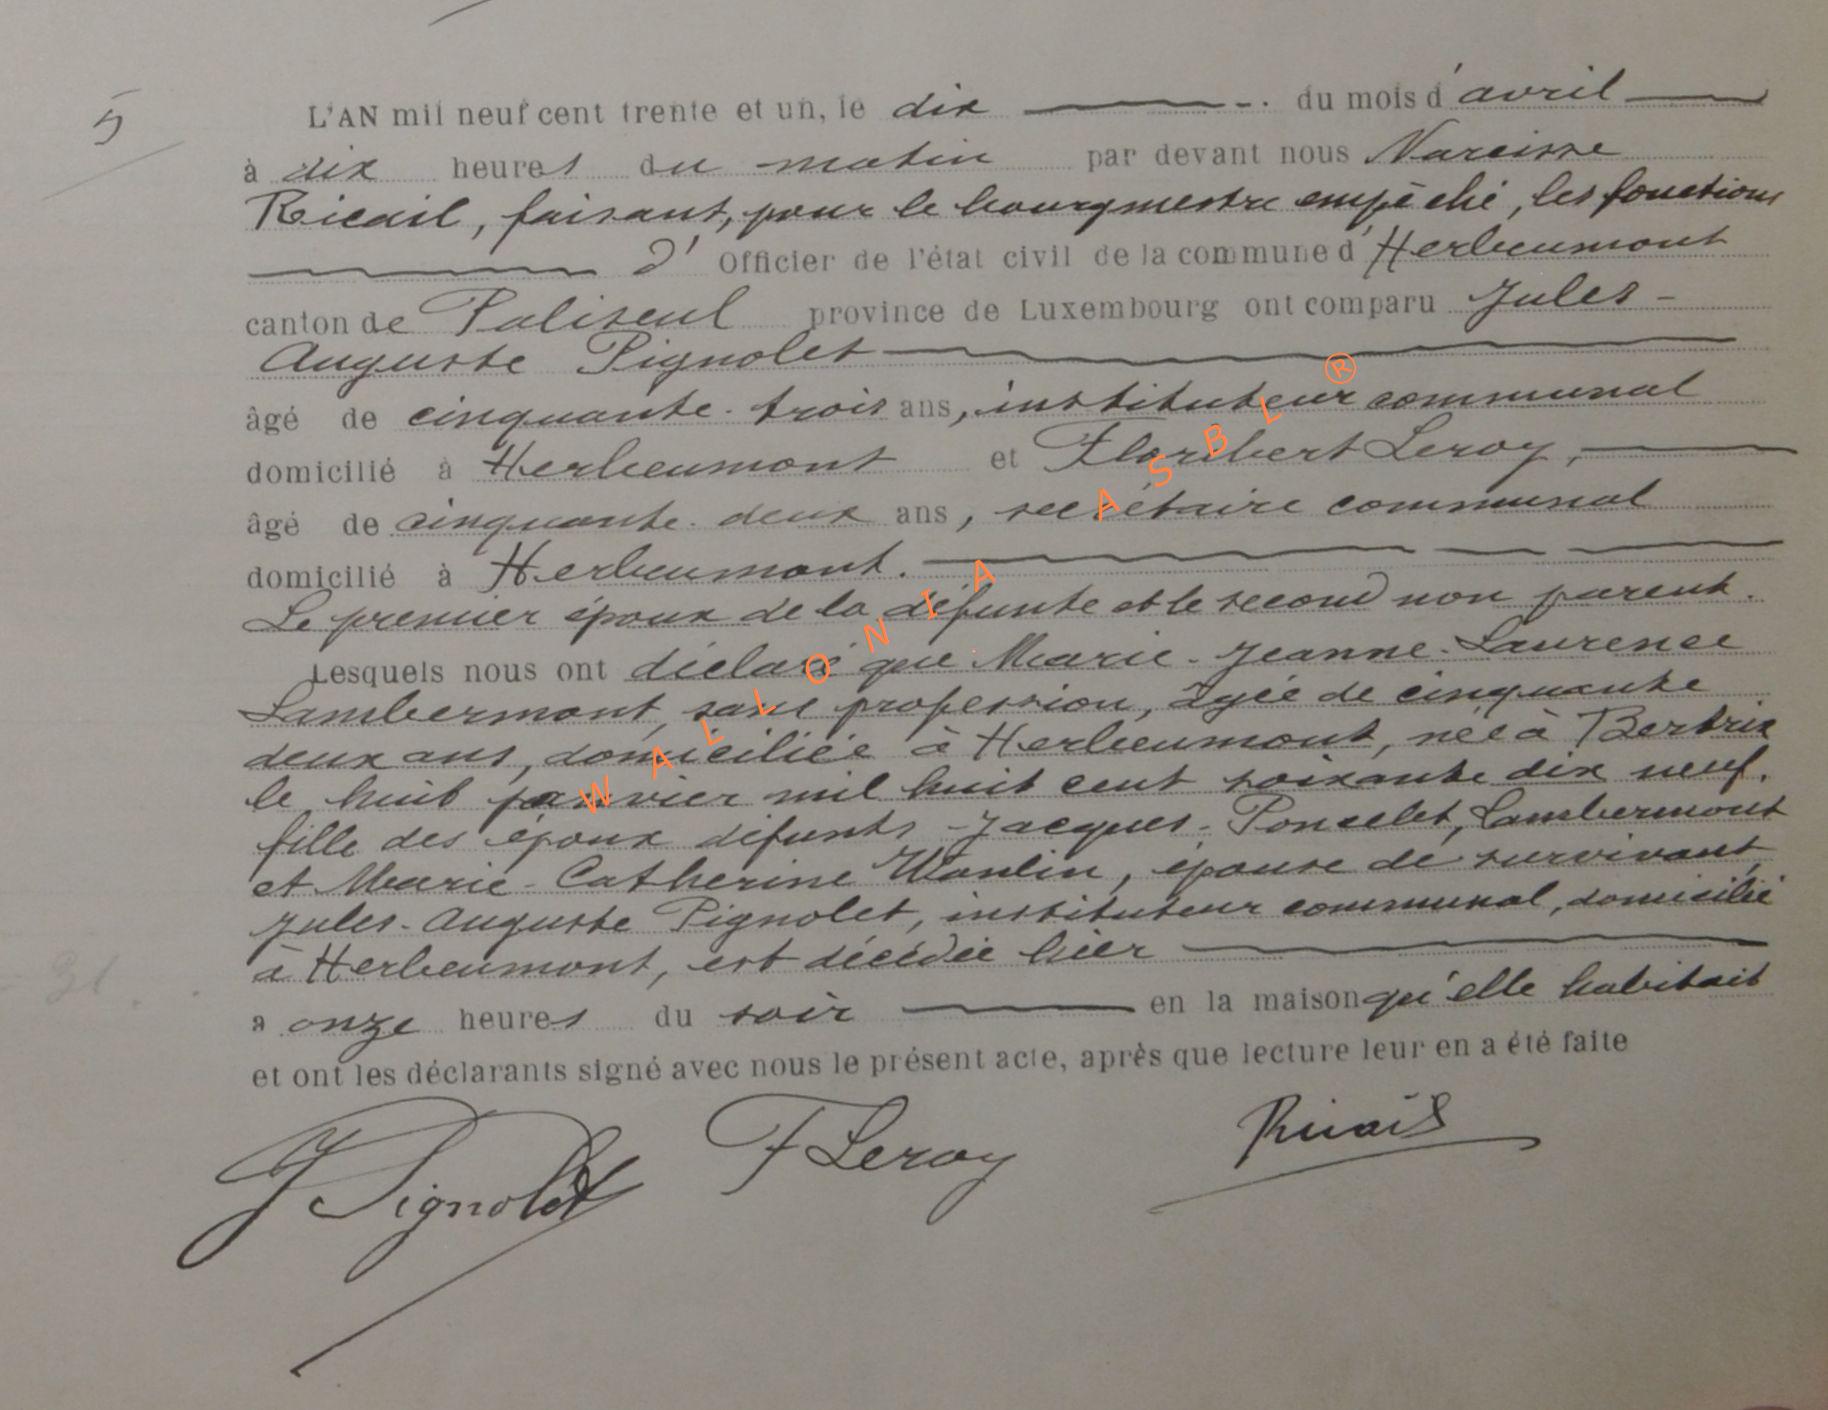 5
L'AN mil neuf cent trente et un, le dix du mois d'avril
à dix heures du matin par devant nous Narcisse
Ricail, faisant, pour le bourgmestre empêché, les fonctions
d' Officier de l'état civil de la commune d'Herbeumont
canton de Paliseul province de Luxembourg ont comparu Jules-
Auguste Pignolet
âgé de cinquante-trois ans, instituteur communal
domicilié à Herbeumont et Floribert Leroy,
âgé de cinquante-deux ans, secrétaire communal
domicilié à Herbeumont.
Le premier époux de la défunte et le second non parent.
Lesquels nous ont déclaré que Marie-Jeanne-Laurence
Lambermont, sans profession, âgée de cinquante
deux ans, domiciliée à Herbeumont, née à Bertrix
le huit janvier mil huit cent soixante dix neuf,
fille des époux défunts Jacques-Poncelet, Lambermont
et Marie-Catherine Wanlin, épouse de survivant
Jules-Auguste Pignolet, instituteur communal, domicilié
à Herbeumont, est décédée hier
a onze heures du soir en la maison qu'elle habitait
et ont les déclarants signé avec nous le présent acte, après que lecture leur en a été faite
J Pignolet F Leroy Ricail
WALLONIA ASBL ®